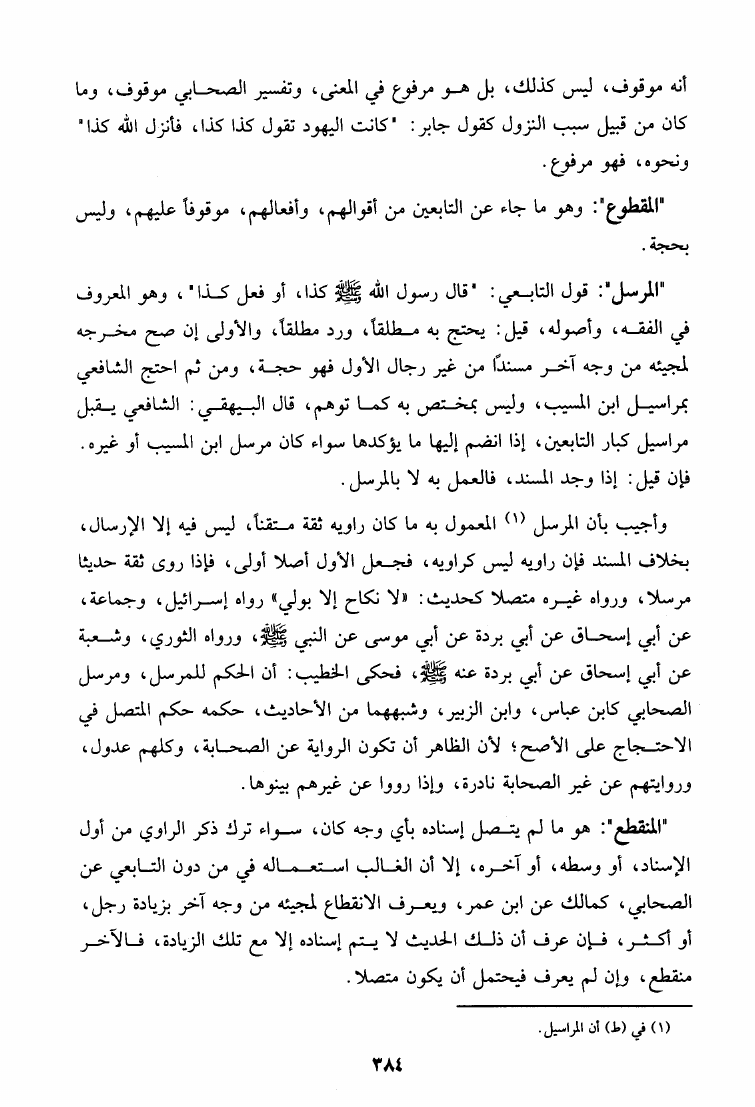 أنه موقوف، ليس كذلك، بل هو مرفوع في المعنى، وتفسير الصحابي موقوف، وما
كان من قبيل سبب النزول كقول جابر: "كانت اليهود تقول كذا كذا، فأنزل الله كذا"
ونحوه، فهو مرفوع.
"المقطوع": وهو ما جاء عن التابعين من أقوالهم، وأفعالهم، موقوفاً عليهم، وليس
بحجة.
"المرسل": قول التابعي: "قال رسول الله ﷺ كذا، أو فعل كذا"، وهو المعروف
في الفقه، وأصوله، قيل: يحتج به مطلقاً، ورد مطلقاً، والأولى إن صح مخرجه
لمجيئه من وجه آخر مسندًا من غير رجال الأول فهو حجة، ومن ثم احتج الشافعي
بمراسيل ابن المسيب، وليس بمختص به كما توهم، قال البيهقي: الشافعي يقبل
مراسيل كبار التابعين، إذا انضم إليها ما يؤكدها سواء كان مرسل ابن المسيب أو غيره.
فإن قيل: إذا وجد المسند، فالعمل به لا بالمرسل.
وأجيب بأن المرسل (١) المعمول به ما كان راويه ثقة متقناً، ليس فيه إلا الإرسال،
بخلاف المسند فإن راويه ليس كراويه، فجعل الأول أصلا أولى، فإذا روى ثقة حديثا
مرسلا، ورواه غيره متصلا كحديث: «لا نكاح إلا بولي» رواه إسرائيل، وجماعة،
عن أبي إسحاق عن أبي بردة عن أبي موسى عن النبي ﷺ، ورواه الثوري، وشعبة
عن أبي إسحاق عن أبي بردة عنه ﷺ، فحكى الخطيب: أن الحكم للمرسل، ومرسل
الصحابي كابن عباس، وابن الزبير، وشبههما من الأحاديث، حكمه حكم المتصل في
الاحتجاج على الأصح؛ لأن الظاهر أن تكون الرواية عن الصحابة، وكلهم عدول،
وروايتهم عن غير الصحابة نادرة، وإذا رووا عن غيرهم بينوها.
"المنقطع": هو ما لم يتصل إسناده بأي وجه كان، سواء ترك ذكر الراوي من أول
الإسناد، أو وسطه، أو آخره، إلا أن الغالب استعماله في من دون التابعي عن
الصحابي، كمالك عن ابن عمر، ويعرف الانقطاع لمجيئه من وجه آخر بزيادة رجل،
أو أكثر، فإن عرف أن ذلك الحديث لا يتم إسناده إلا مع تلك الزيادة، فالآخر
منقطع، وإن لم يعرف فيحتمل أن يكون متصلا.
(١) في (ط) أن المراسيل.
٣٨٤